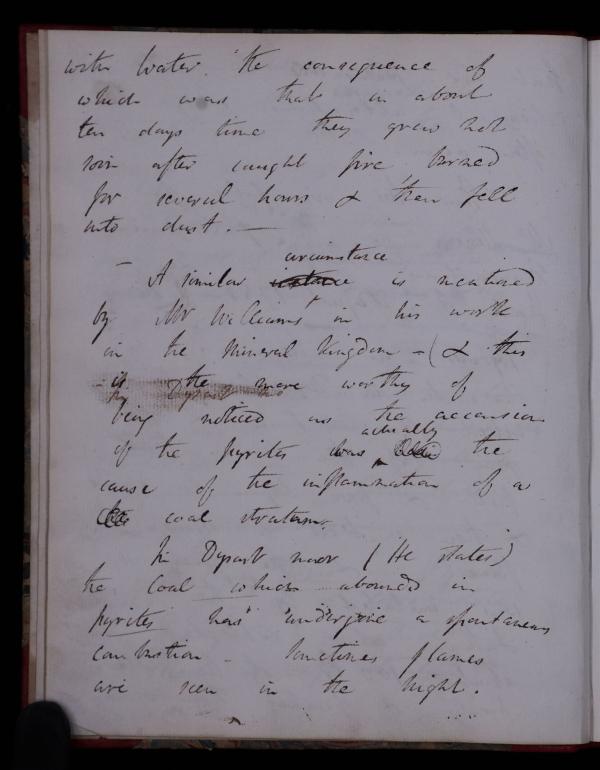 with water. the consequence of
which was that in about
ten days time they grew hot
soon after caught fire burned
for several hours & then fell
into dust. —
circumstance
— A similar is mentioned
by Mr Williams in his work
in the Mineral Kingdom - (& this
is the more worthy of
being noticed as the accension
actually
of the pyrites was the
cause of the inflammation of a
coal stratum.
In Dysart moor (He states)
the Coal which abounds in
pyrites has undergone a spontaneous
combustion - Sometimes flames
are seen in the night.